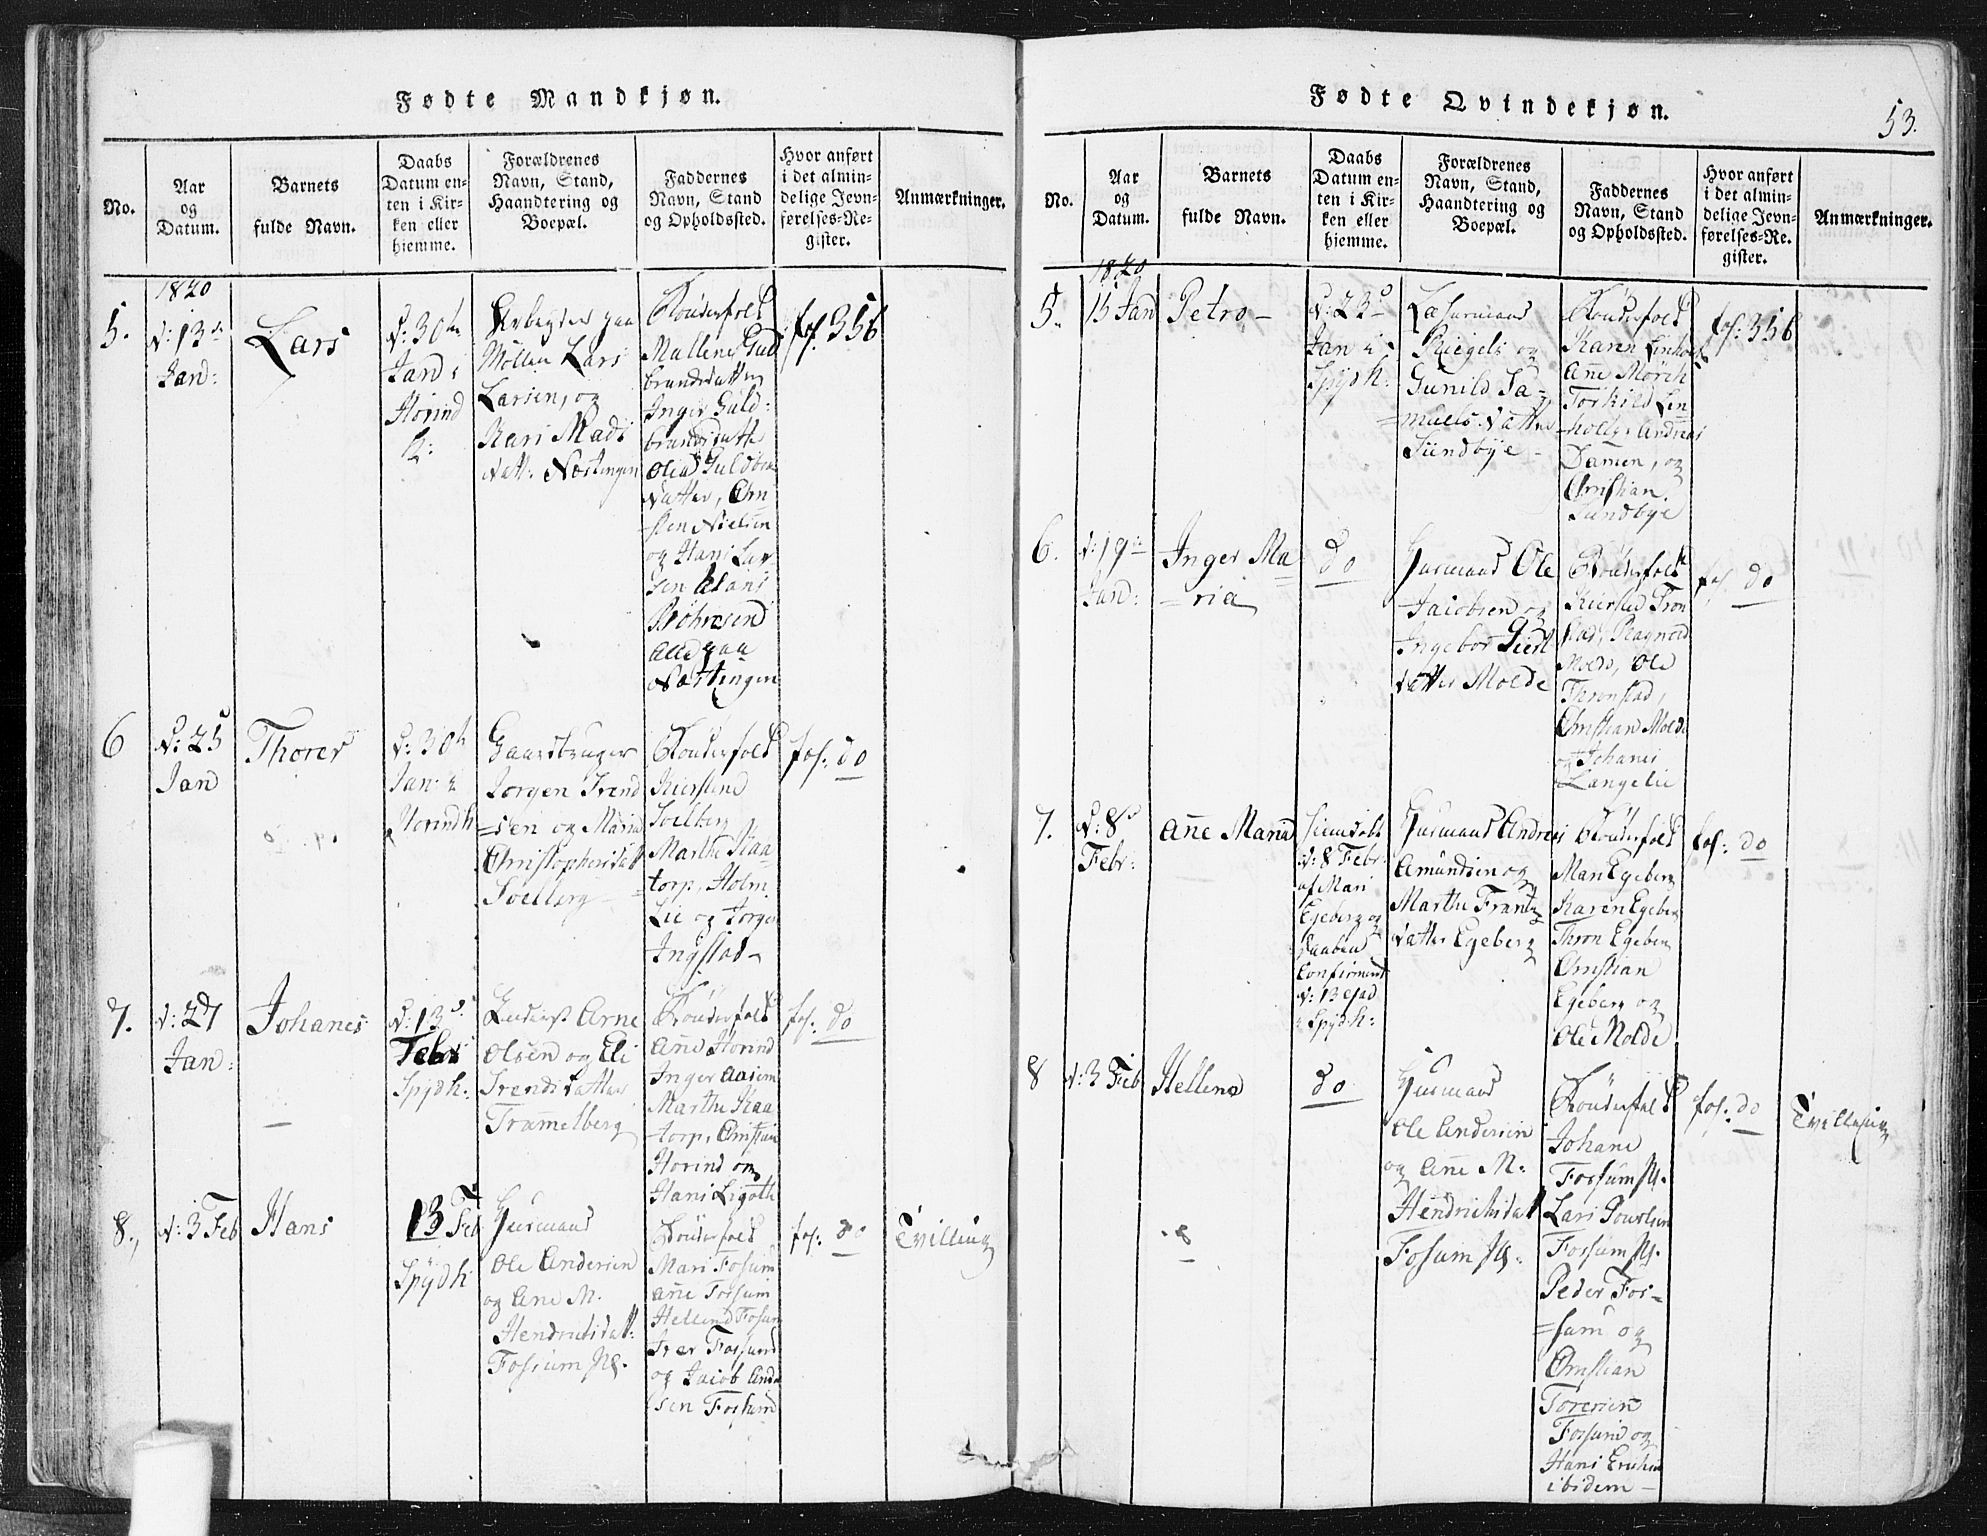 Fødte Mandkjøn.
No.
Aar
og
Datum.
Barnets
fulde Navn.
Daabs
Datum en-
ten i Kir-
ken eller
hjemme.
Forældrenes
Navn, Stand,
Haandtering og
Boepæl.
Faddernes
Navn, Stand
og Opholdssted.
Hvor anført
i det almin-
delige Jevn-
førelses-Re-
gister.
Anmærkninger.
5.
1820
d: 13de
Jan:
Lars
Jan:
Arbeyder paa
Møllen Lars
Larsen, og
Kari Mads
datt: Næstingen
Bønderfolk
Mallene Guld
brandsdatter
Inger Guld-
brandsdatter
Olea Guldbr
datter, Chri
=sten Nielsen
og Hans Lar
sen
alle paa
Næstingen
fol. 356
6
d: 25
Jan
Thorer
d: 30th
Jan: i
Horindk
Gaardbruger
Jorgen Trend
=sen og Maria
Christophersdatt
Soelberg
Bønderfolk
Kierstine
Soelberg
Marthe Raa
=torp, Holm
Lie og Jorgen
Ingstad-
fol: do
7.
d: 27
Jan:
Johanes
d: 13de
Febr
Spydk:
Arne
Olsen og Eli
Trendsdatter
Trammelberg
Bønderfolk
Ane Horind
Inger Aasem
Marthe Raa
-torp, Christian
Horind og
Hans Ligoth
fol: do
8.,
d: 3 Feb
Hans
13 Feb
Spydk
Huusmand
Ole Andersen
og Ane M.
Hendrichsdatt:
Fossum
Bønderfolk
Mari Fossum
Ane Fossum
Hellene Fossum
Iver Fossum
og Jacob Ander
sen Fossum
fol: do
Tvilling
Fødte Qvindekjøn.
53.
No.
Aar
og
Datum.
Barnets
fulde Navn.
Daabs
Datum en-
ten i Kir-
ken eller
hjemme.
Forældrenes
Navn, Stand,
Haandtering og
Boepæl.
Faddernes
Navn, Stand
og Opholdssted.
Hvor anført
i det almin-
delige Jevn-
førelses-Re-
gister.
Anmærkninger.
5.
1820
15 Jan
Petro-
d: 23d
Jan i
Spydk:
og
Gunild Sa-
=muels datter
Sundbye-
Bønderfolk
Karen Linholt
Ane Mørch
Torkild Lin
=holt, Andreas
Damen, og
Christian
Sundbye
fol: 356
6.
d: 19de
Jan:
Inger Ma
=ria
do
Huusmand Ole
Jacobsen og
Ingebor
datter Molde
Bønderfolk
Kiersted Tron
stad, Ragnild
Molde, Ole
Thronstad,
Christian Molde
og Johanes
Langelie
fol. do
7.
d: 8de
Febr:
Ane Maria
Hjemdøbt
d: 8 Febr:
af Mari
Egeberg og
Daaben
Confirmert
d: 13 ejusd
i Spydk:
Huusmand Andreas
Amundsen og
Marthe Frants
datter Egeberg
Bønderfolk
Mari Egeberg
Karen Egeberg
Thron Egeberg
Christian
Egeberg og
Ole Molde
fol: do
8
d: 3 Feb
Hellene
do
Huusmand
Ole Andersen
og Ane M:
Hendrichsdatt
Fossum
Bønderfolk
Johane
Fossum
Lars Povelsen
Fossum
Peder Fos=
=sum og
Christian
Toresen
Fossum og
Hans Erichsen
ibidem-
fol: do
Tvilling